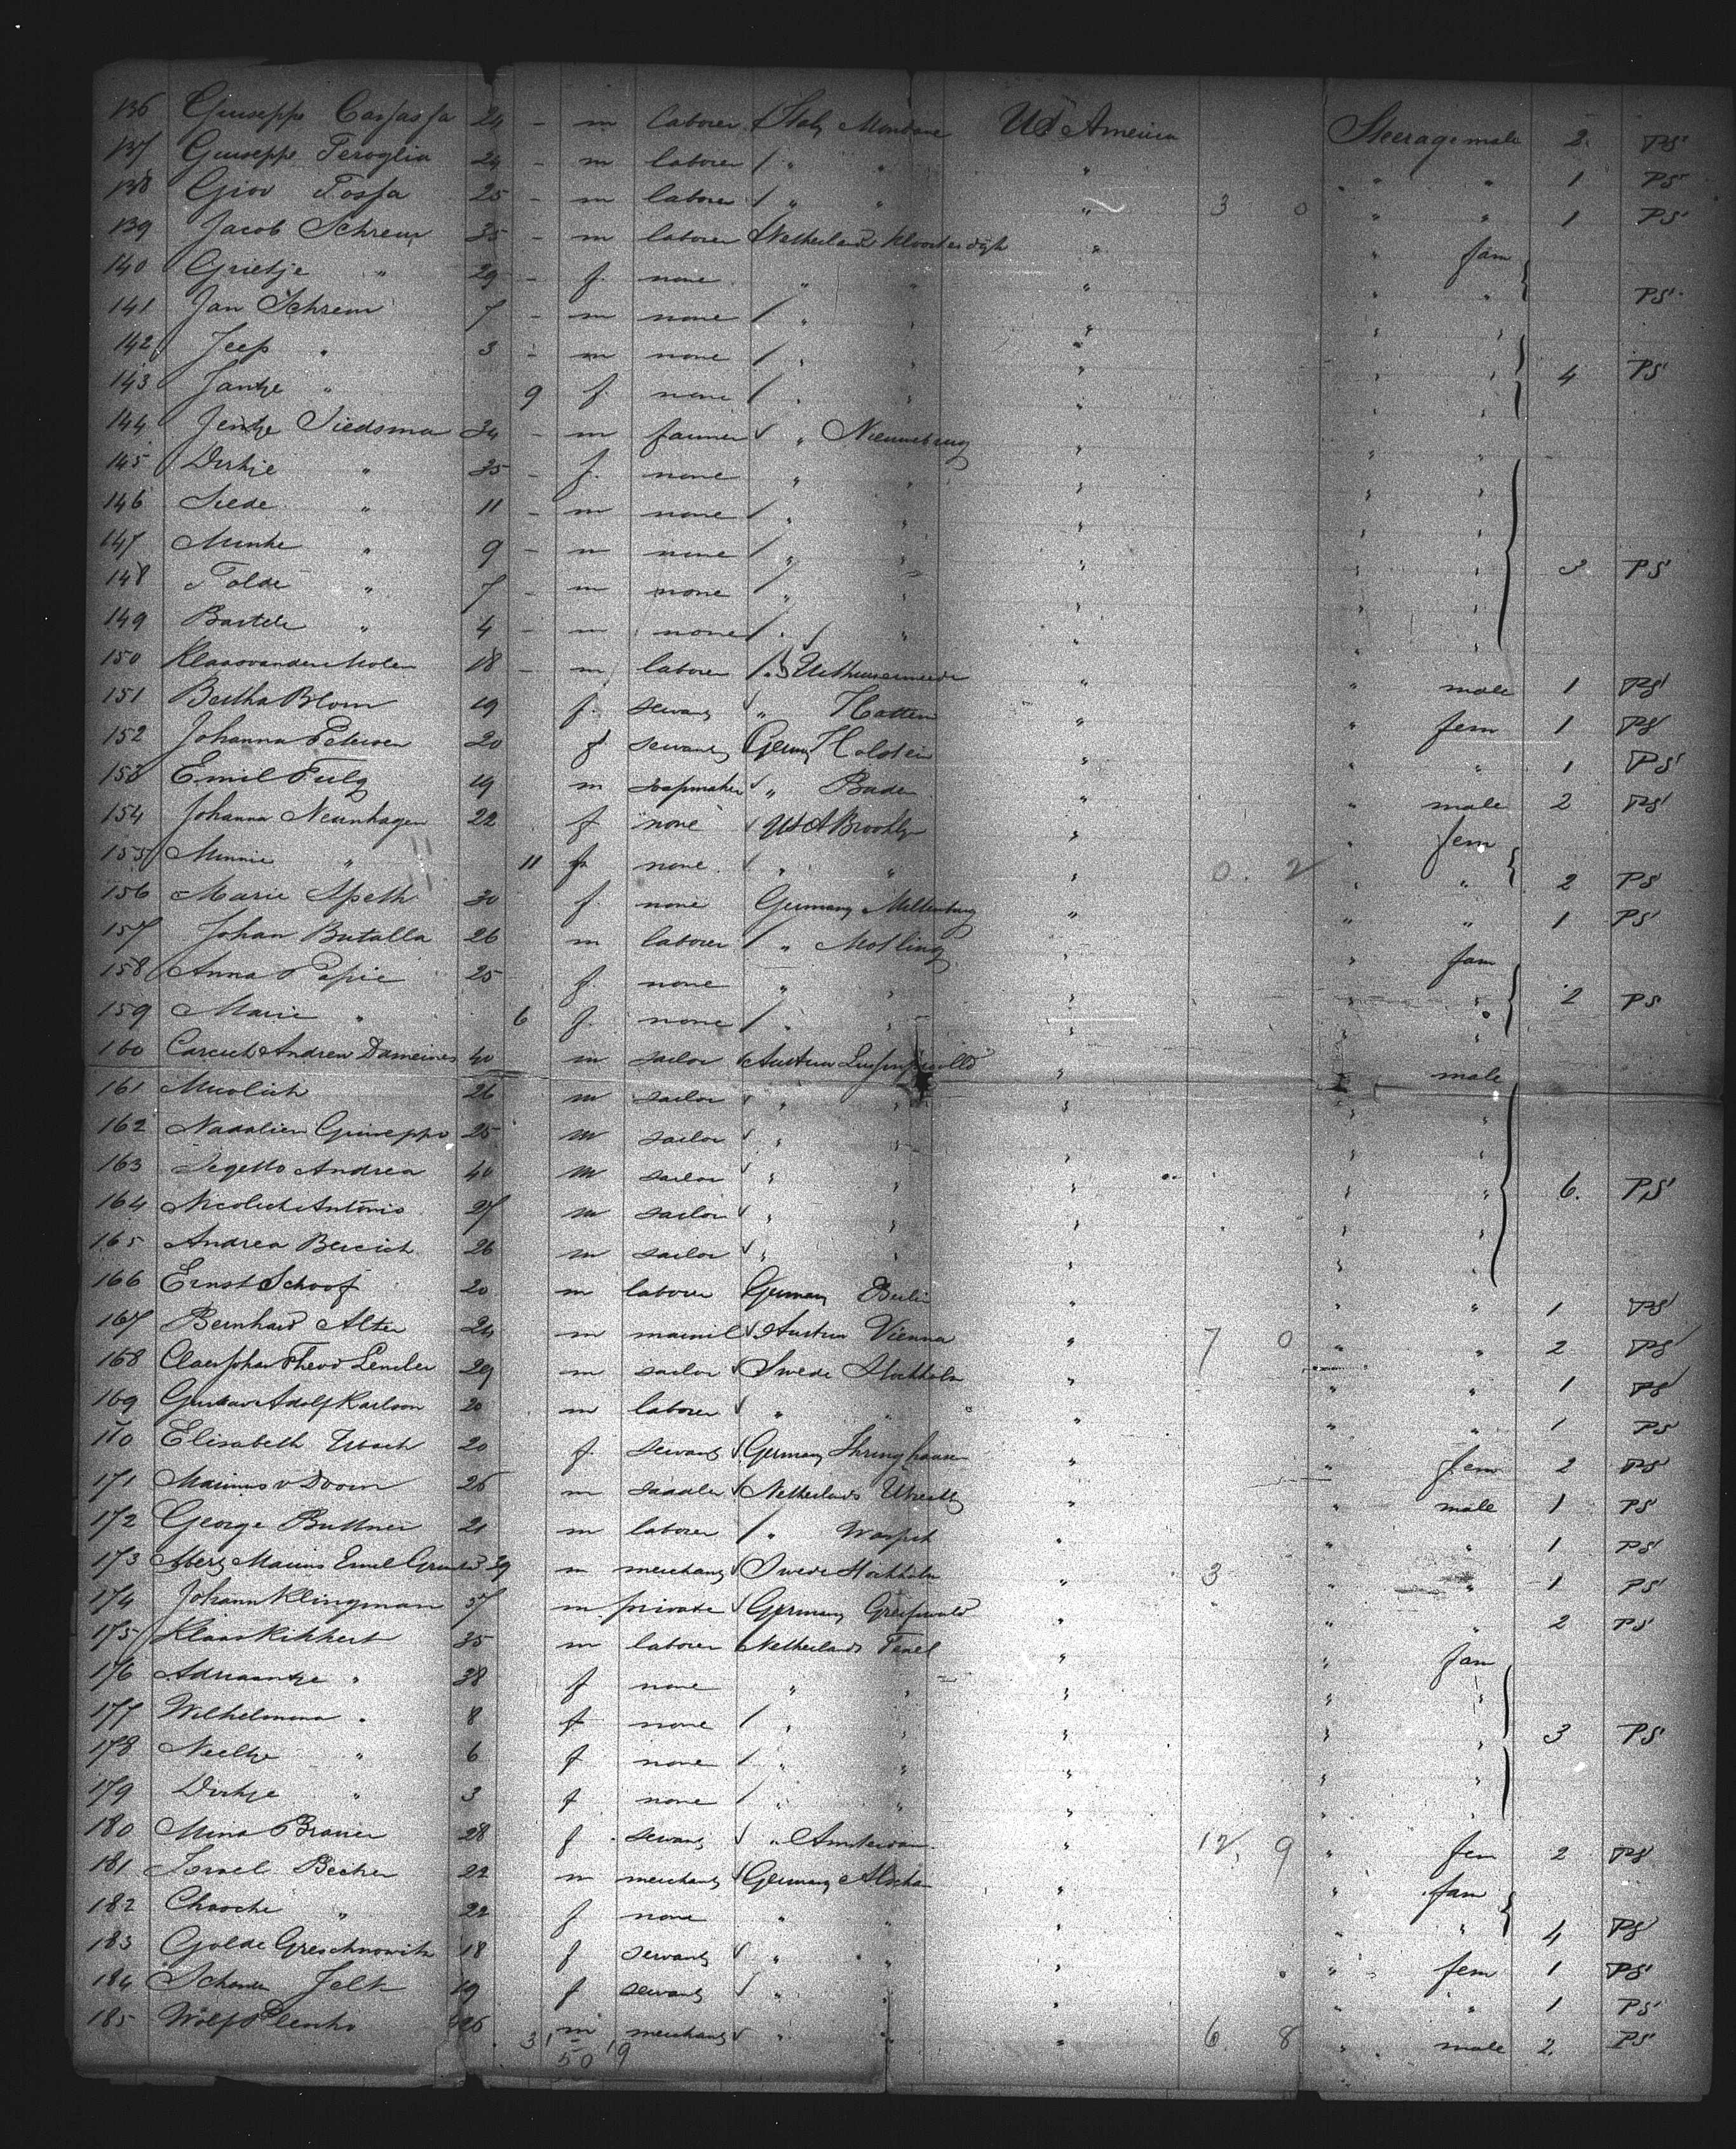 136 Giuseppe Cassassa 24 - m laborer Italy Mondave US America Steerage male 2. PS
137 Giuseppe Feroglia 24 - m laborer / " " " " " 1 PS
138 Giov Fossa 25 - m laborer / " " " 3 0 " " 1 PS
139 Jacob Schreur 35 - m laborer Netherlands " " fam
140 Grietje " 29 - f. none " " " " " PS
141 Jan Schreur 7 - m none / " " " " "
142 Jeep " 3 - m none / " " " " " 4 PS
143 Jantje " 9 f. none / " " " " "
144 Jentje Siedsma 34 - m farmer √ " Nieuwebrug " " "
145 Dirkje " 35 - f. none " " " " "
146 Siede " 11 - m none / " " " " "
147 Minke " 9 - m none / " " " " " 3 PS
148 Folde " 7 - m none / " " " " "
149 Bartele " 4 - m none / " " " " "
150 Klaas van der Molen 18 - m laborer / " " " male 1 PS
151 Bertha Blom 19 f. servant √ " Hattem " " fem 1 PS
152 Johanna Petersen 20 f servant Germ Holstein " " " 1 PS
153 Emil Fulg 19 m soapmaker √ " Baden " " male 2 PS
154 Johanna Neunhagen 22 f none √ USA Brooklyn " " fem
155 Minnie " 11 f none √ " " " 0. 2 " " 2 PS
156 Marie Speth 30 f. none Germany Miltenburg " " " 1 PS
157 Johan Butalla 26 m laborer / " Motling " " fam
158 Anna Papie 25 f. none " " " " " 2 PS
159 Marie " 6 f. none / " " " " "
160 Carcich Andrea 40 m sailor √ Austria " male
161 Nicolich 26 m sailor √ " " " " "
162 Nadalien Giuseppe 25 m sailor √ " " " " "
163 Segetto Andrea 40 m sailor √ " " " " " 6. PS
164 Nicolich Antonio 27 m sailor √ " " " " "
165 Andrea Bercich 26 m sailor √ " " " " "
166 Ernst Schoof 20 m laborer Germany Berlin " " " 1 PS
167 Bernhard Alter 24 m √ Austria Vienna " 7 0 " " 2 PS
168 Claes Johan Theod Lender 29 m sailor √ Swede Stockholm " " " 1 PS
169 Gustav Adolf Karlson 20 m laborer √ " " " " " 1 PS
170 Elisabeth 20 f. servant √ Germany Ihringshausen " " fem 2 PS
171 Marinus v Doorn 26 m saddler √ Netherlands Utrecht " " male 1 PS
172 George Buttner 21 m laborer / " " " " 1 PS
173 Marius Emil 39 m merchant √ Swede Stockholm " 3 " " 1 PS
174 Johann Klingman 37 m private √ Germany Greifswald " " " 2 PS
175 Klaas Kikkert 35 m laborer Netherlands Texel " " fam
176 Adriaantje " 38 f none " " " " "
177 Wilhelmina " 8 f none / " " " " " 3 PS
178 Neeltje " 6 f none / " " " " "
179 Dirkje " 3 f none / " " " " "
180 Mina Brauer 28 f. servant √ " Amsterdam " 12, 9 " fem 2 PS
181 Israel Becker 22 m merchant √ Germany " " fam
182 Chasche " 22 f none " " " " " 4 PS
183 Golde Greschnowitz 18 f servant √ " " " " fem 1 PS
184 Jelk 19 f servant √ " " " " 1 PS
185 Wolf 26 m merchant √ " " " 6. 8 " male 2. PS
31 19
50